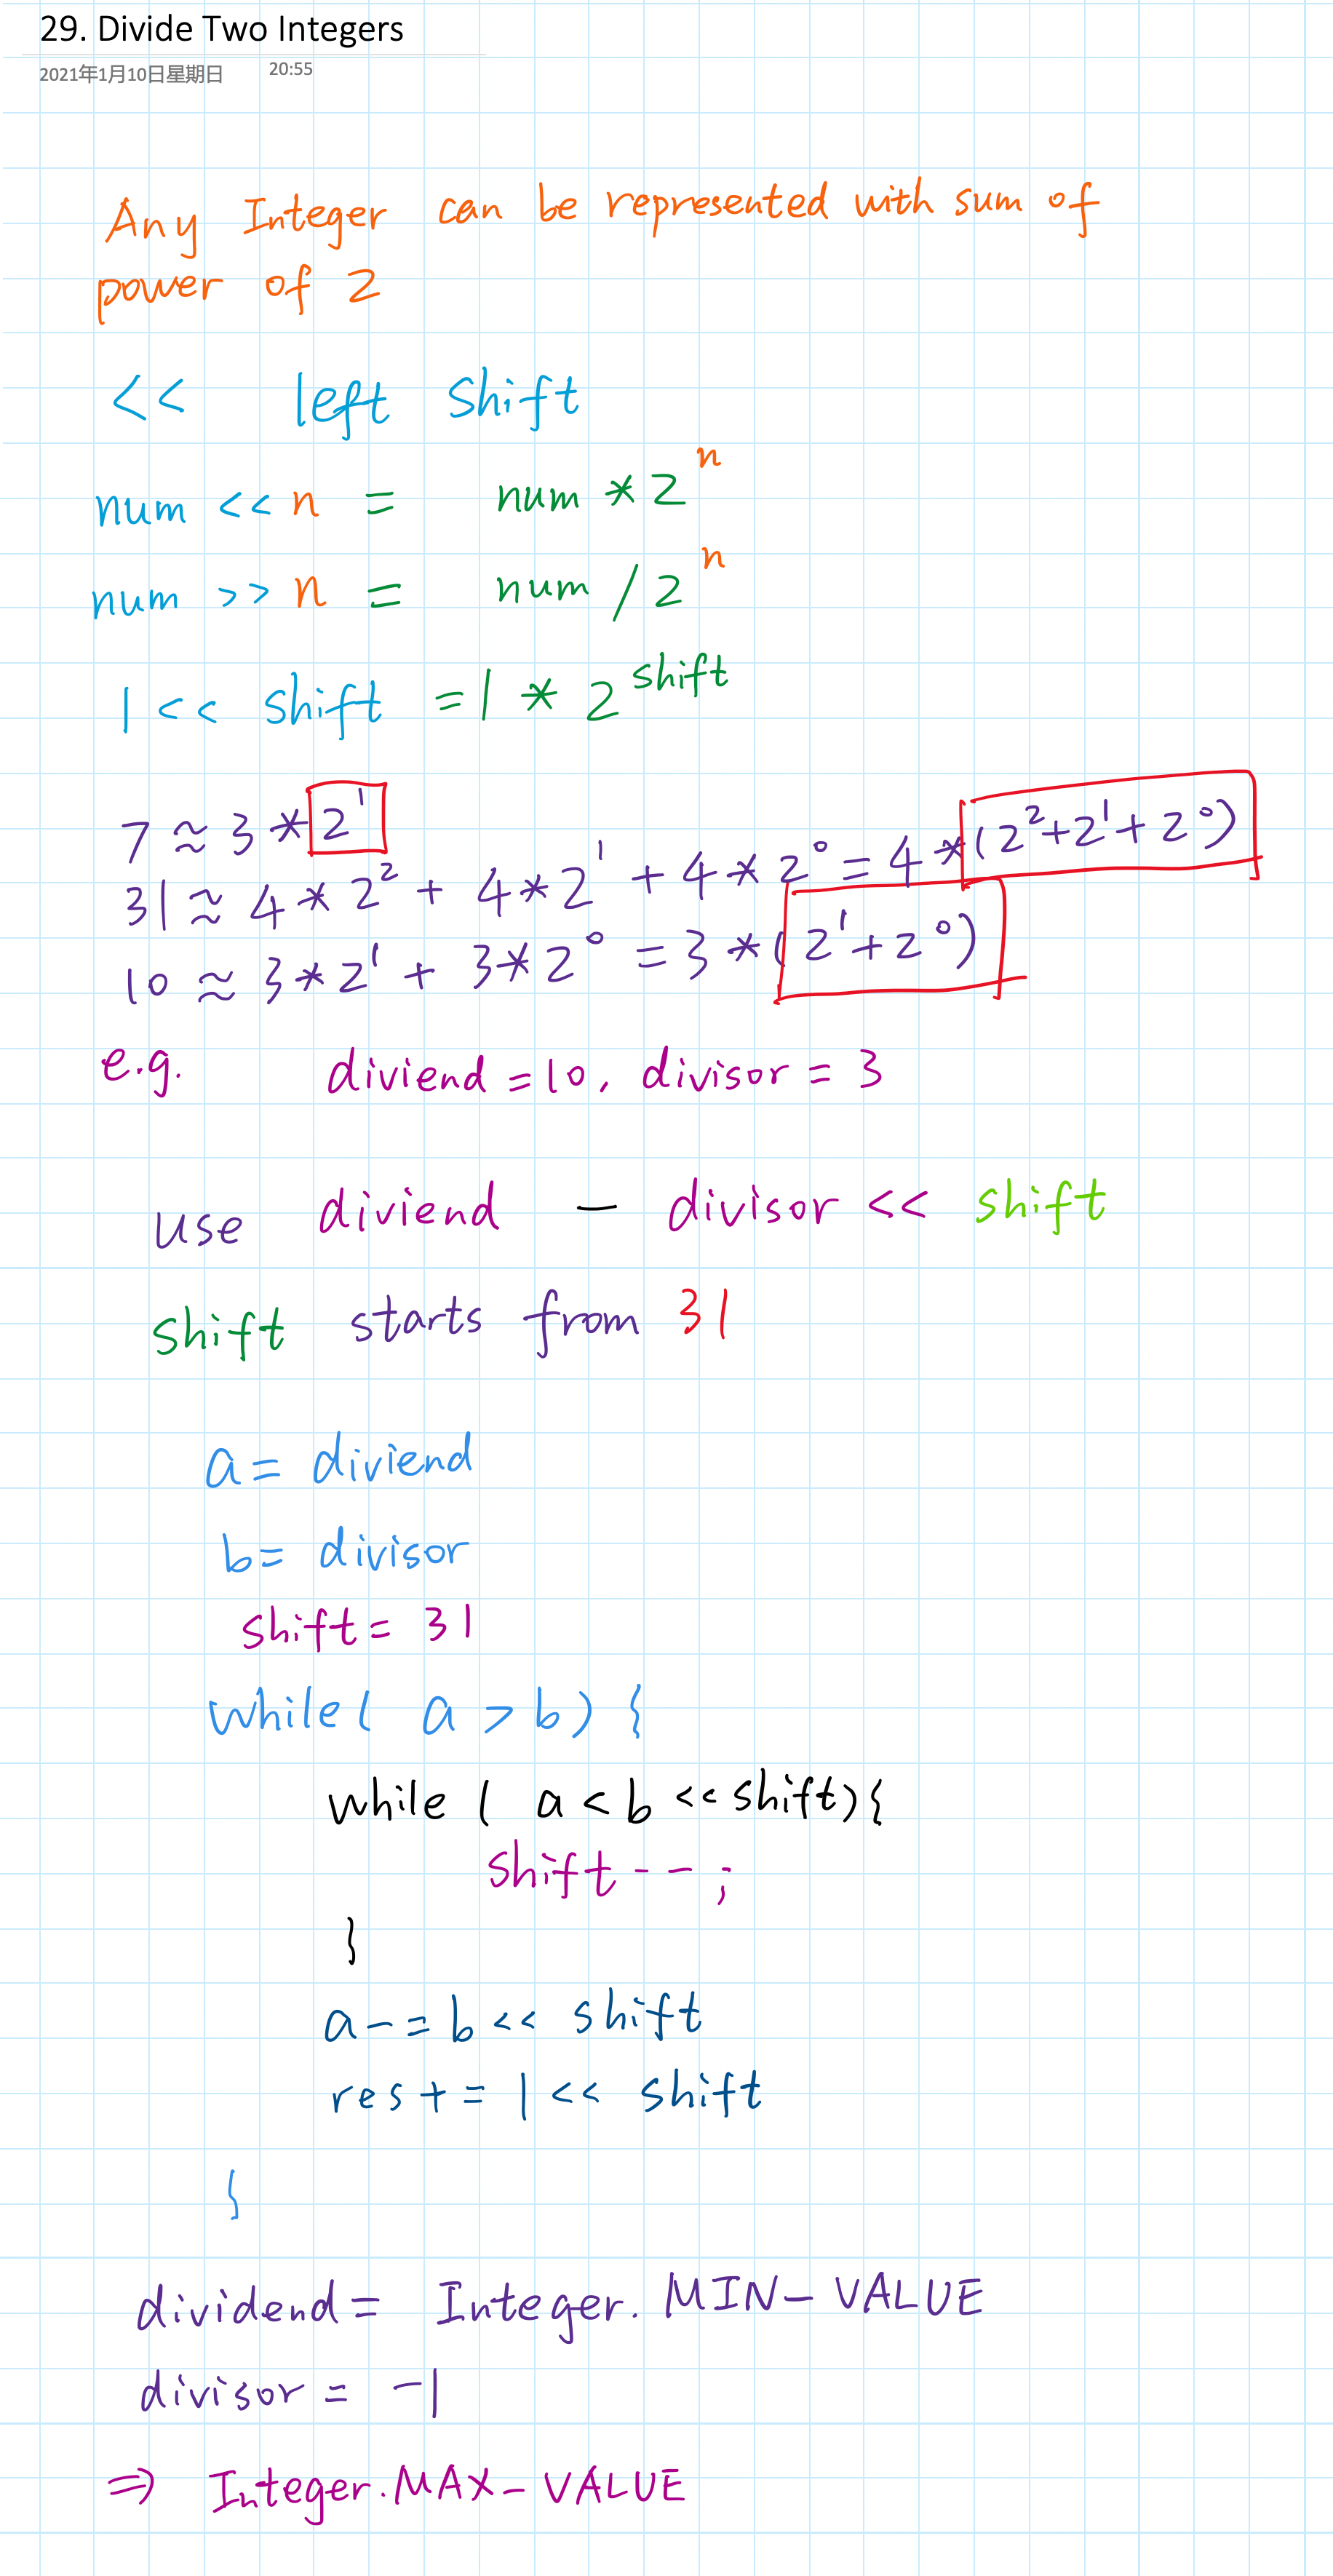 29. Divide Two Integers
2021年1月10日星期日 20:55
Any Integer can be represented with sum of
power of 2
<< left shift
num << n = num * 2^n
num >> n = num / 2^n
1 << shift = 1 * 2^shift
7 ≈ 3 * 2^1
31 ≈ 4 * 2^2 + 4 * 2^1 + 4 * 2^0 = 4 * (2^2 + 2^1 + 2^0)
10 ≈ 3 * 2^1 + 3 * 2^0 = 3 * (2^1 + 2^0)
e.g. diviend = 10, divisor = 3
use diviend - divisor << shift
shift starts from 31
a = diviend
b = divisor
shift = 31
while( a > b) {
while ( a < b << shift) {
shift--;
}
a -= b << shift
res += 1 << shift
}
dividend = Integer.MIN_VALUE
divisor = -1
⇒ Integer.MAX_VALUE